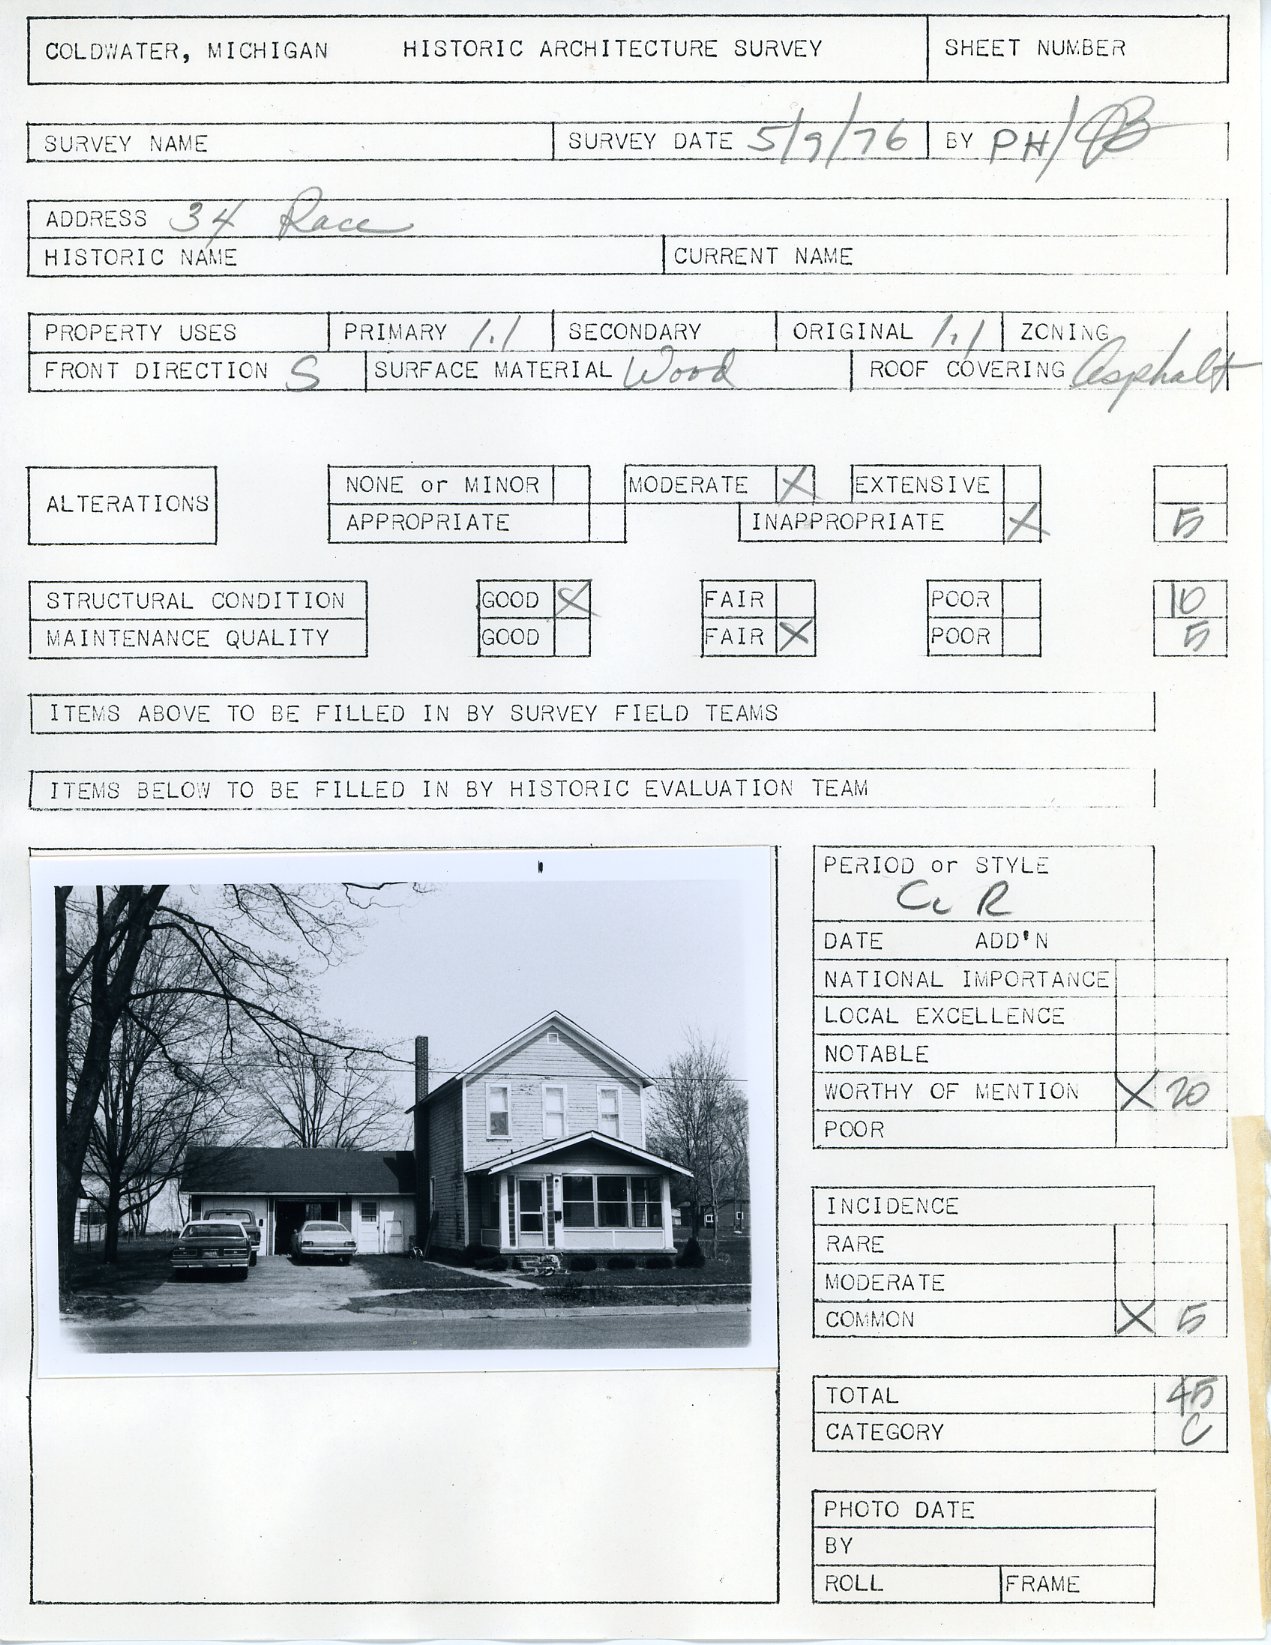 COLDWATER, MICHIGAN HISTORIC ARCHITECTURE SURVEY SHEET NUMBER
SURVEY NAME SURVEY DATE 5/9/76 BY PH/JB
ADDRESS 34 Race
HISTORIC NAME CURRENT NAME
PROPERTY USES PRIMARY 1.1 SECONDARY ORIGINAL 1.1 ZONING
FRONT DIRECTION S SURFACE MATERIAL Wood ROOF COVERING Asphalt
ALTERATIONS
NONE or MINOR MODERATE X EXTENSIVE
APPROPRIATE INAPPROPRIATE X 5
STRUCTURAL CONDITION GOOD X FAIR POOR 10
MAINTENANCE QUALITY GOOD FAIR X POOR 5
ITEMS ABOVE TO BE FILLED IN BY SURVEY FIELD TEAMS
ITEMS BELOW TO BE FILLED IN BY HISTORIC EVALUATION TEAM
PERIOD or STYLE
R
DATE ADD'N
NATIONAL IMPORTANCE
LOCAL EXCELLENCE
NOTABLE
WORTHY OF MENTION X 20
POOR
INCIDENCE
RARE
MODERATE
COMMON X 5
TOTAL 45
CATEGORY C
PHOTO DATE
BY
ROLL FRAME